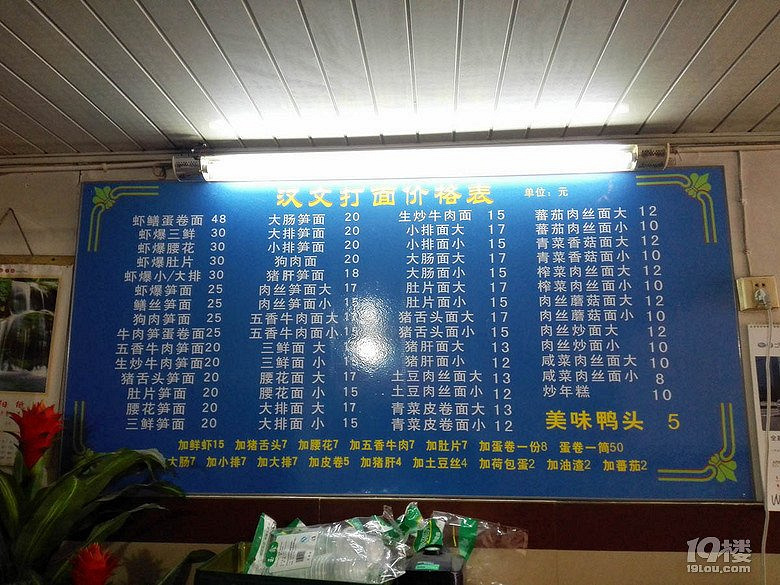 汉文打面价格表
单位:元
虾鳝蛋卷面 48
虾爆三鲜 30
虾爆腰花 30
虾爆肚片 30
虾爆小/大排 30
虾爆笋面 25
鳝丝笋面 25
狗肉笋面 25
牛肉笋蛋卷面25
五香牛肉笋面20
生炒牛肉笋面20
猪舌头笋面 20
肚片笋面 20
腰花笋面 20
三鲜笋面 20
大肠笋面 20
大排笋面 20
小排笋面 20
狗肉面 20
猪肝笋面 18
肉丝笋面大 17
肉丝笋面小 15
五香牛肉面大17
五香牛肉面小15
三鲜面 大
三鲜面 小
腰花面 大 17
腰花面 小 15
大排面 大 17
大排面 小 15
生炒牛肉面 15
小排面大 17
小排面小 15
大肠面大 17
大肠面小 15
肚片面大 17
肚片面小 15
猪舌头面大 17
猪舌头面小 15
猪肝面大 13
猪肝面小 12
土豆肉丝面大 13
土豆肉丝面小 12
青菜皮卷面大 13
青菜皮卷面小 12
蕃茄肉丝面大 12
蕃茄肉丝面小 10
青菜香菇面大 12
青菜香菇面小 10
榨菜肉丝面大 12
榨菜肉丝面小 10
肉丝蘑菇面大 12
肉丝蘑菇面小 10
肉丝炒面大 12
肉丝炒面小 10
咸菜肉丝面大 10
咸菜肉丝面小 8
炒年糕 10
美味鸭头 5
加鲜虾15 加猪舌头7 加腰花7 加五香牛肉7 加肚片7 加蛋卷一份8 蛋卷一筒50
大肠7 加小排7 加大排7 加皮卷5 加猪肝4 加土豆丝4 加荷包蛋2 加油渣2 加蕃茄2
19楼
19lou.com